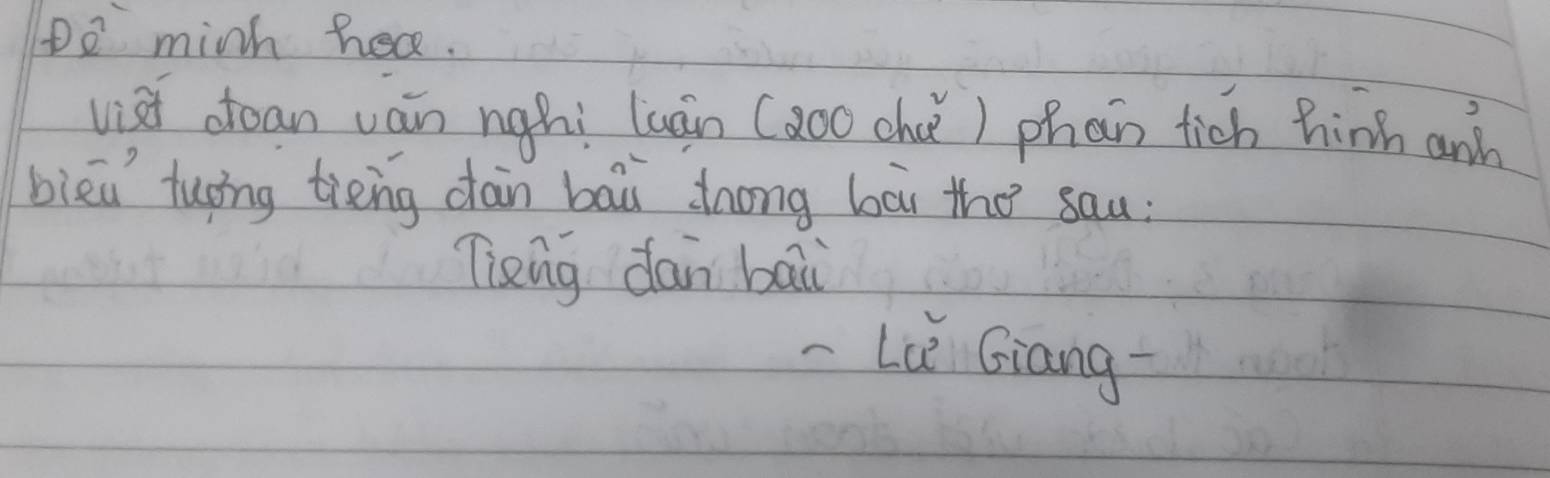 Đề minh họa.
Viết đoạn văn nghị luận (200 chữ) phân tích hình ảnh
biểu tượng tiếng đàn bầu trong bài thơ sau:
Tiếng đàn bầu
- Lữ Giang -